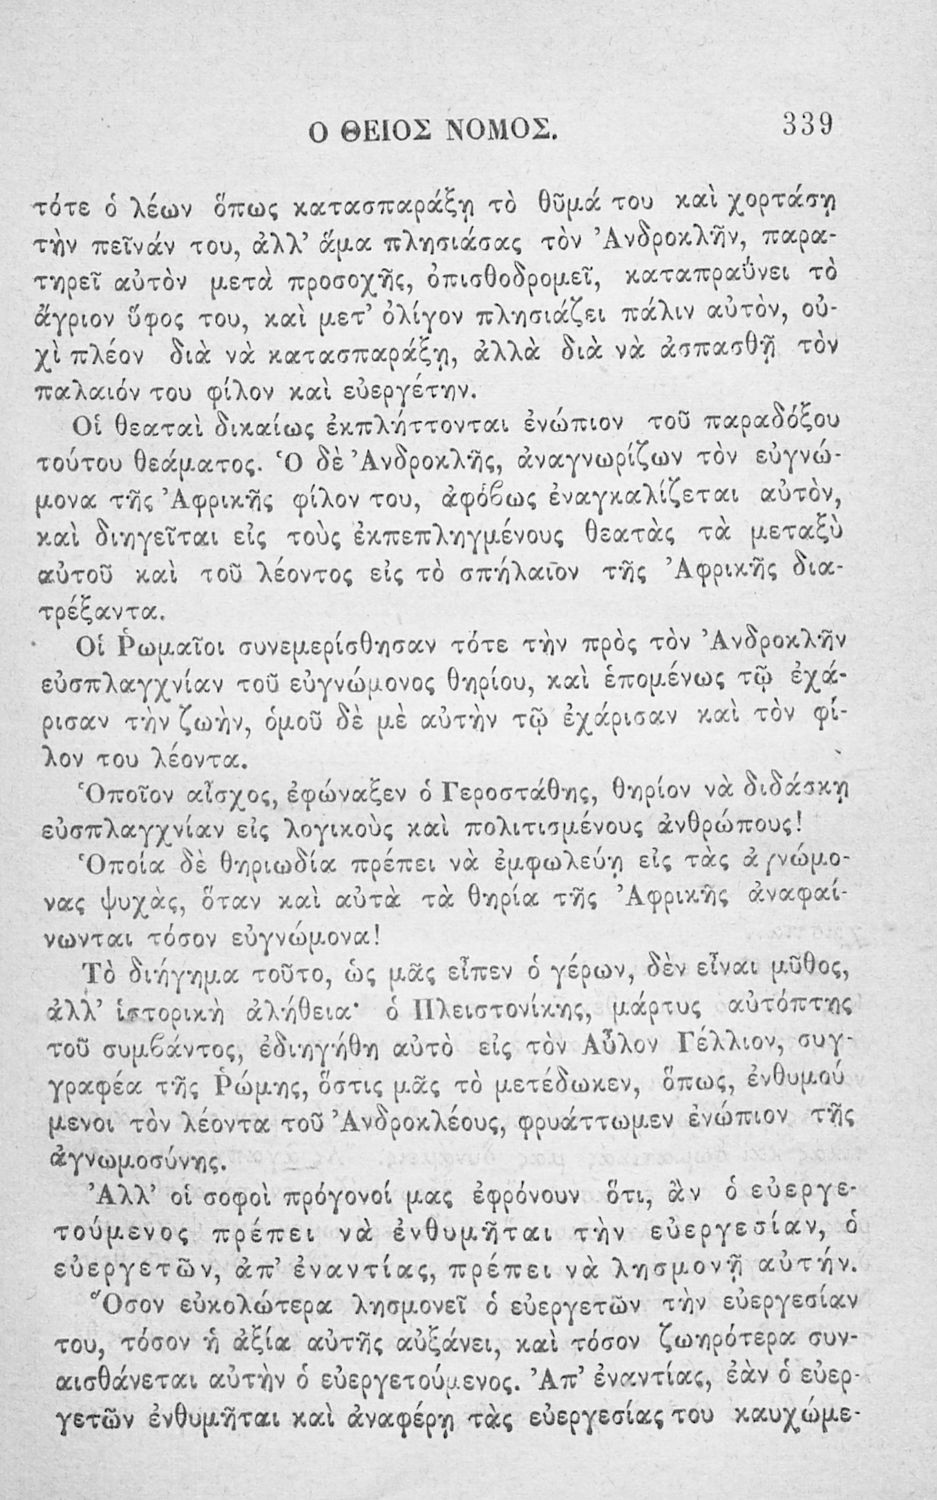 Ο ΘΕΙΟΣ ΝΟΜΟΣ. 339
τότε ὁ λέων ὅπως κατασπαράξῃ τὸ θῦμά του καὶ χορτάσῃ
τὴν πεῖνάν του, ἀλλ’ ἅμα πλησιάσας τὸν Ἀνδροκλῆν, παρα-
τηρεῖ αὐτὸν μετὰ προσοχῆς, ὀπισθοδρομεῖ, καταπραΰνει τὸ
ἄγριον ὕφος του, καὶ μετ’ ὀλίγον πλησιάζει πάλιν αὐτὸν, οὐ-
χὶ πλέον διὰ νὰ κατασπαράξῃ, ἀλλὰ διὰ νὰ ἀσπασθῇ τὸν
παλαιόν του φίλον καὶ εὐεργέτην.
Οἱ θεαταὶ δικαίως ἐκπλήττονται ἐνώπιον τοῦ παραδόξου
τούτου θεάματος. Ὁ δὲ Ἀνδροκλῆς, ἀναγνωρίζων τὸν εὐγνώ-
μονα τῆς Ἀφρικῆς φίλον του, ἀφόβως ἐναγκαλίζεται αὐτὸν,
καὶ διηγεῖται εἰς τοὺς ἐκπεπληγμένους θεατὰς τὰ μεταξὺ
αὐτοῦ καὶ τοῦ λέοντος εἰς τὸ σπήλαιον τῆς Ἀφρικῆς δια-
τρέξαντα.
Οἱ Ῥωμαῖοι συνεμερίσθησαν τότε τὴν πρὸς τὸν Ἀνδροκλῆν
εὐσπλαγχνίαν τοῦ εὐγνώμονος θηρίου, καὶ ἑπομένως τῷ ἐχά-
ρισαν τὴν ζωὴν, ὁμοῦ δὲ μὲ αὐτὴν τῷ ἐχάρισαν καὶ τὸν φί-
λον του λέοντα.
Ὁποῖον αἶσχος, ἐφώναξεν ὁ Γεροστάθης, θηρίον νὰ διδάσκῃ
εὐσπλαγχνίαν εἰς λογικοὺς καὶ πολιτισμένους ἀνθρώπους!
Ὁποία δὲ θηριωδία πρέπει νὰ ἐμφωλεύῃ εἰς τὰς ἀγνώμο-
νας ψυχὰς, ὅταν καὶ αὐτὰ τὰ θηρία τῆς Ἀφρικῆς ἀναφαί-
νωνται τόσον εὐγνώμονα!
Τὸ διήγημα τοῦτο, ὡς μᾶς εἶπεν ὁ γέρων, δὲν εἶναι μῦθος,
ἀλλ’ ἱστορικὴ ἀλήθεια· ὁ Πλειστονίκης, μάρτυς αὐτόπτης
τοῦ συμβάντος, ἐδιηγήθη αὐτὸ εἰς τὸν Αὖλον Γέλλιον, συγ-
γραφέα τῆς Ῥώμης, ὅστις μᾶς τὸ μετέδωκεν, ὅπως, ἐνθυμού
μενοι τὸν λέοντα τοῦ Ἀνδροκλέους, φρυάττωμεν ἐνώπιον τῆς
ἀγνωμοσύνης.
Ἀλλ’ οἱ σοφοὶ πρόγονοί μας ἐφρόνουν ὅτι, ἂν ὁ εὐεργε-
τούμενος πρέπει νὰ ἐνθυμῆται τὴν εὐεργεσίαν, ὁ
εὐεργετῶν, ἀπ’ ἐναντίας, πρέπει νὰ λησμονῇ αὐτήν.
Ὅσον εὐκολώτερα λησμονεῖ ὁ εὐεργετῶν τὴν εὐεργεσίαν
του, τόσον ἡ ἀξία αὐτῆς αὐξάνει, καὶ τόσον ζωηρότερα συν-
αισθάνεται αὐτὴν ὁ εὐεργετούμενος. Ἀπ’ ἐναντίας, ἐὰν ὁ εὐερ-
γετῶν ἐνθυμῆται καὶ ἀναφέρῃ τὰς εὐεργεσίας του καυχώμε-